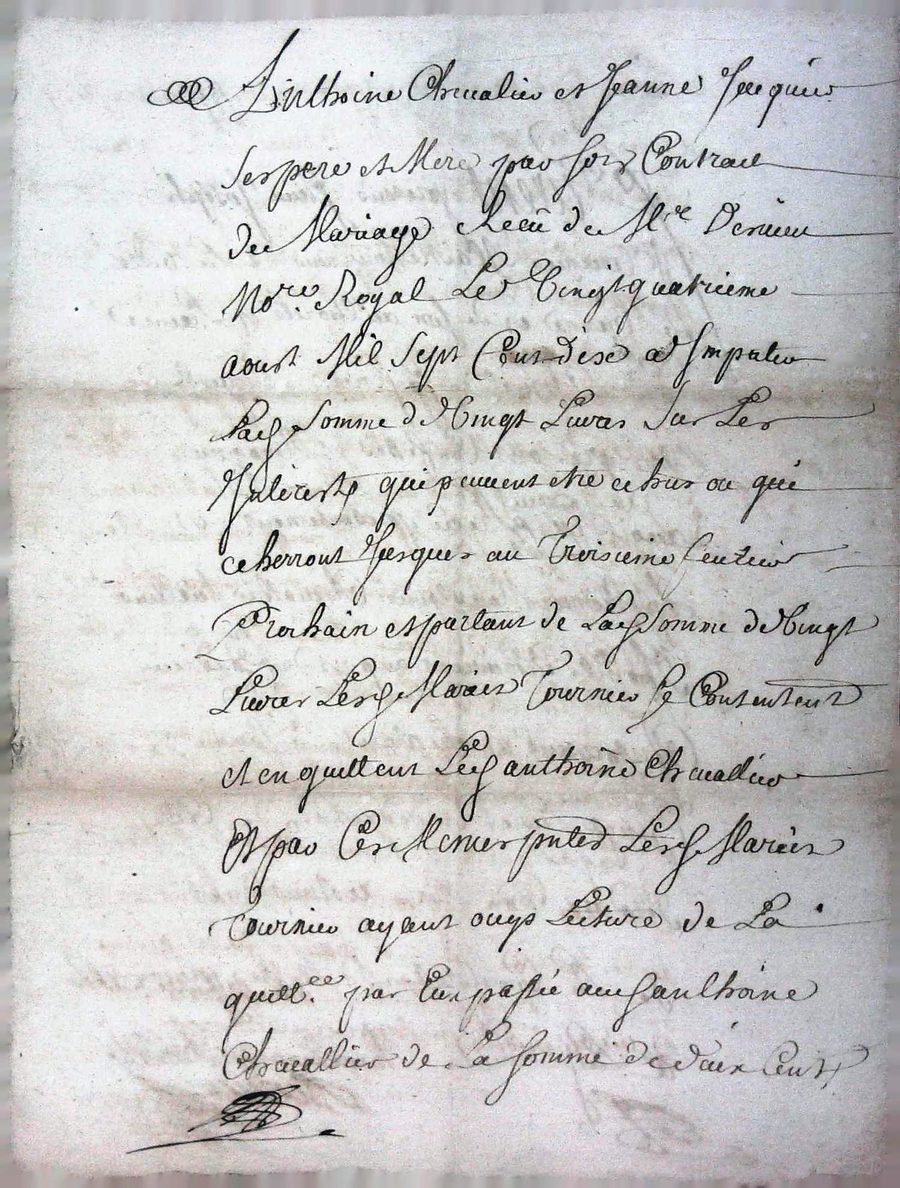 Anthoine Chevalier et Jeanne Jacquier
ses pere et Mere par son Contract
de Mariage Receu de Mre
Nore Royal Le Vingt quatrieme
aoust Mil Sept Cent dixe a Imputer
Lad somme de Vingt Livres Sur Les
Interests qui peuvent etre echeus ou qui
echerront Jusques au Troisieme feuvrier
Prochain et partant de Lad Somme de Vingt
Livres Lesd Mariés Tournier se Contentent
et en quittent Led anthoine Chevallier
Et par Ces Memes pntes Lesd Mariés
Tournier ayant ouys Lecture de La
quittce par Eux passée aud anthoine
Chevallier de La somme de deux Cent